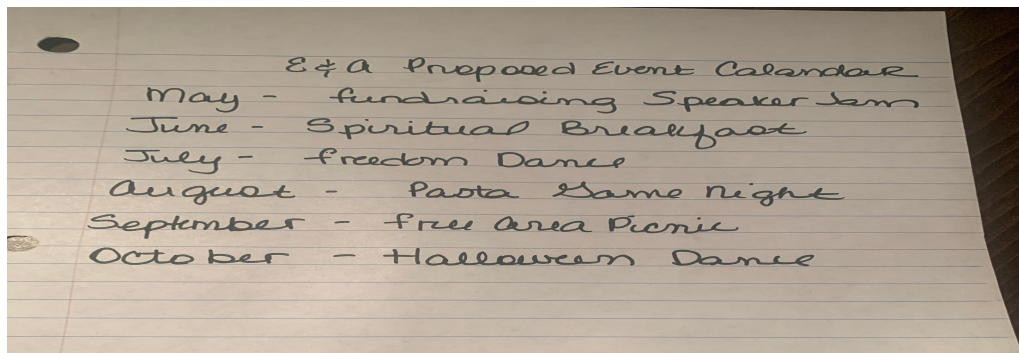 E & A Proposed Event Calandar
May - fundraising Speaker Jam
June - Spiritual Breakfast
July - freedom Dance
August - Pasta Game night
September - free area Picnic
October - Halloween Dance